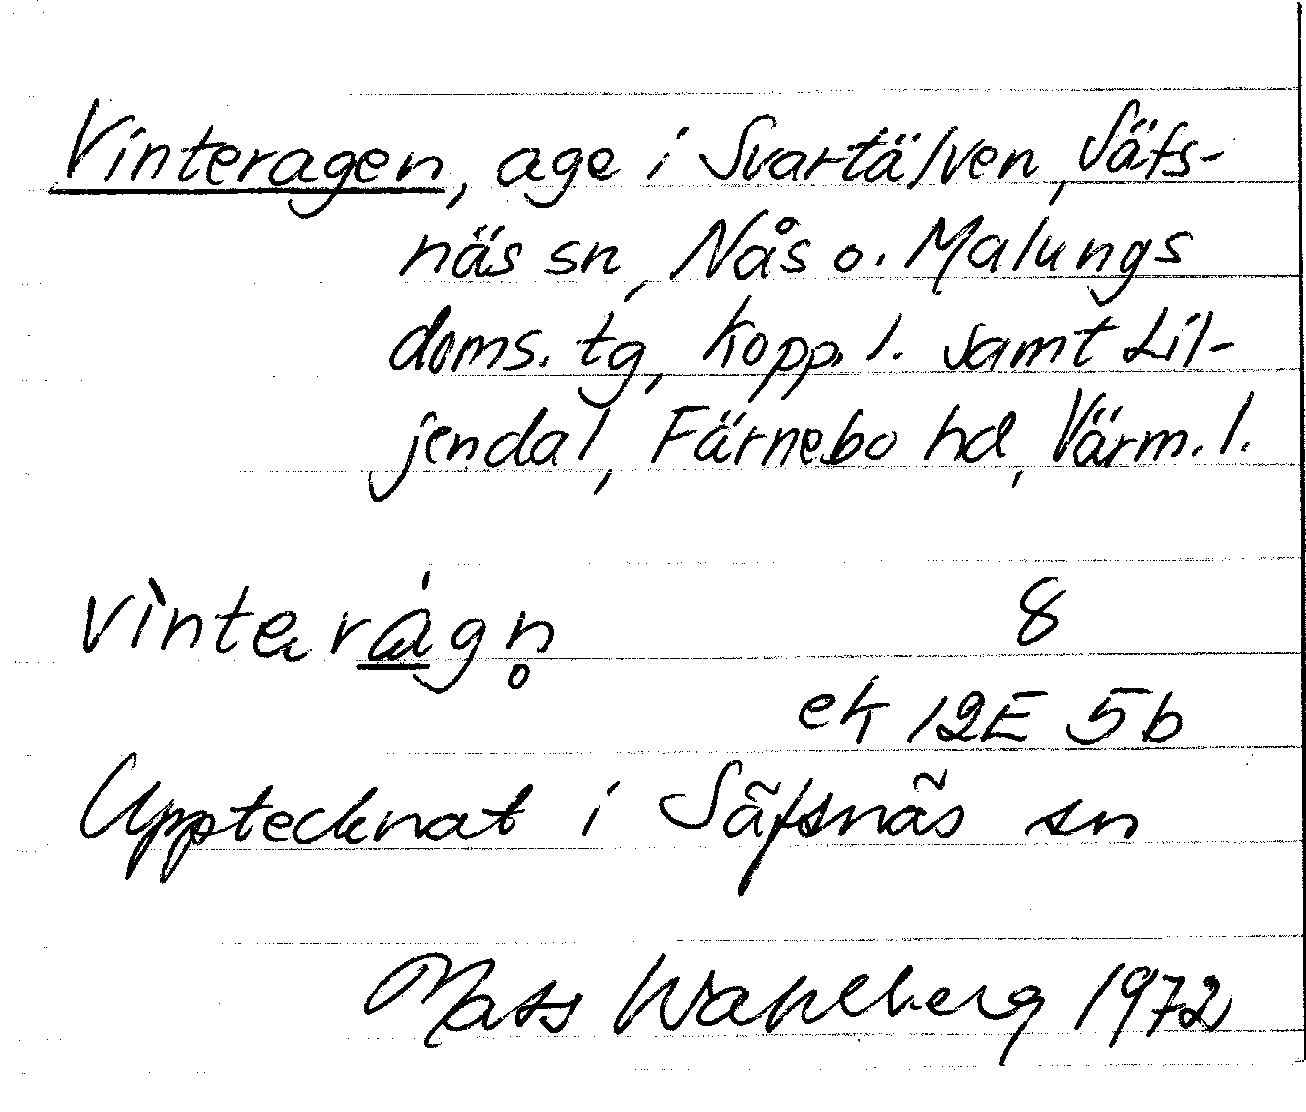 Vinteragen, age i Svartälven, Säfs-
näs sn, Nås o. Malungs
doms. tg, Kopp. l. samt Lil-
jendal, Färnebo hd, Värm. l.
vìnterágn̥ 8
ek 12E 5b
Upptecknat i Säfsnäs sn
Mats Wahlberg 1972